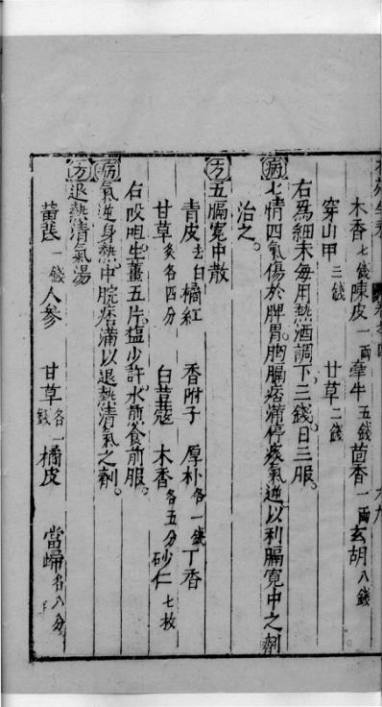 木香七錢陳皮一兩牽牛五錢茴香一兩玄胡八錢
穿山甲三錢 甘草二錢
右爲細末每用熱酒調下三錢日三服。
病七情四氣傷於脾胃。胸膈痞滿停痰氣逆以利膈寬中之劑
治之。
方五膈寬中散
青皮去白橘紅 香附子 厚朴各一錢丁香
甘草炙各四分 白荳蔻 木香各五分砂仁七枚
右㕮咀。生薑五片。鹽少許。水煎食前服。
病氣逆身熱。中脘痞滿以退熱清氣之劑。
方退熱清氣湯
黄芪一錢人參 甘草各一錢橘皮 當歸各八分